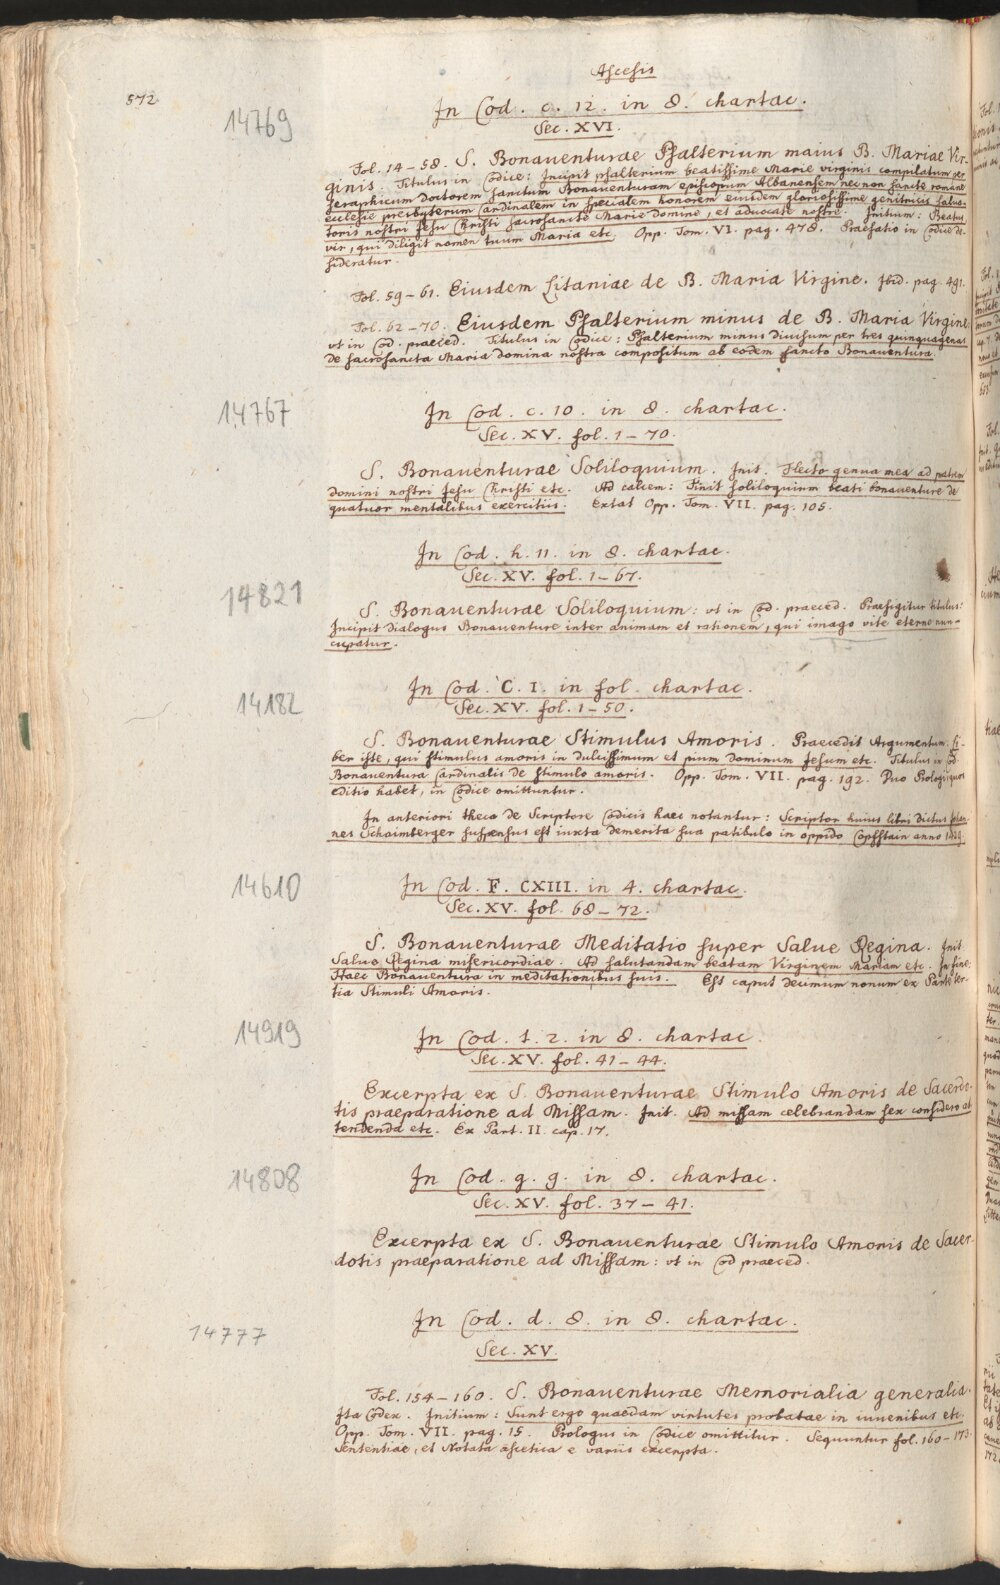 Ascesis
572
14769
In Cod. c. 12. in 8. chartac.
Sec. XVI.
Fol. 14-58. S. Bonauenturae Psalterium maius B. Mariae Vir-
ginis. Titulus in Codice: Incipit psalterium beatissime Marie virginis compilatum per
seraphicum doctorem sanctum Bonauenturam episcopum Albanensem nec non sancte romane
ecclesie presbyterum Cardinalem in specialem honorem eiusdem gloriosissime genitricis salua-
toris nostri Jesu Christi sacrosancte Marie domine, et aduocate nostre. Initium: Beatus
vir, qui diligit nomen tuum Maria etc. Opp. Tom. VI. pag. 478. Praefatio in Codice de-
sideratur.
Fol. 59-61. Eiusdem Litaniae de B. Maria Virgine. Ibid. pag. 491.
Fol. 62-70. Eiusdem Psalterium minus de B. Maria Virgine:
vt in Cod. praeced. Titulus in Codice: Psalterium minus diuisum per tres quinquagenas
de sacrosancta Maria domina nostra compositum ab eodem sancto Bonauentura.
14767
In Cod. c. 10. in 8. chartac.
Sec. XV. fol. 1-70.
S. Bonauenturae Soliloquium. Init. Flecto genua mea ad patrem
domini nostri Jesu Christi etc. Ad calcem: Finit soliloquium beati bonauenture de
quatuor mentalibus exercitiis. Extat Opp. Tom. VII. pag. 105.
In Cod. h. 11. in 8. chartac.
Sec. XV. fol. 1-67.
14821
S. Bonauenturae Soliloquium: vt in Cod. praeced. Praefigitur titulus:
Incipit dialogus Bonauenture inter animam et rationem, qui imago vite eterne nun-
cupatur.
14182
In Cod. C. I. in fol. chartac.
Sec. XV. fol. 1-50.
S. Bonauenturae Stimulus Amoris. Praecedit Argumentum: Li-
ber iste, qui stimulus amoris in dulcissimum et pium dominum Jesum etc. Titulus in Cod.
Bonauentura Cardinalis de stimulo amoris. Opp. Tom. VII. pag. 192. Duo Prologi, quos
editio habet, in Codice omittuntur.
In anteriori theca de Scriptore Codicis haec notantur: Scriptor huius libri dictus Johan-
nes Schaimberger suspensus est iuxta demerita sua patibulo in oppido Copfstain anno
14610
In Cod. F. CXIII. in 4. chartac.
Sec. XV. fol. 68-72.
S. Bonauenturae Meditatio super Salue Regina. Init.
Salue Regina misericordiae. Ad salutandam beatam Virginem Mariam etc. In fine:
Haec Bonauentura in meditationibus suis. Est caput decimum nonum ex Parte ter-
tia Stimuli Amoris.
14919
In Cod. s. 2. in 8. chartac.
Sec. XV. fol. 41-44.
Excerpta ex S. Bonauenturae Stimulo Amoris de Sacerdo-
tis praeparatione ad Missam. Init. Ad missam celebrandam sex considero at-
tendenda etc. Ex Part. II. cap. 17.
14808
In Cod. g. 9. in 8. chartac.
Sec. XV. fol. 37-41.
Excerpta ex S. Bonauenturae Stimulo Amoris de Sacer-
dotis praeparatione ad Missam: vt in Cod praeced.
14777
In Cod. d. 8. in 8. chartac.
Sec. XV.
Fol. 154-160. S. Bonauenturae Memorialia generalia.
Ita Codex. Initium: Sunt ergo quaedam virtutes probatae in iuuenibus etc.
Opp. Tom. VII. pag. 15. Prologus in Codice omittitur. Sequuntur fol. 160-173.
Sententiae, et Notata ascetica e variis excerpta.